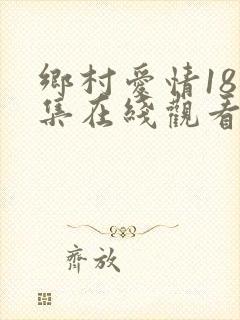 鄉村愛情18
集在綫觀看
齊放